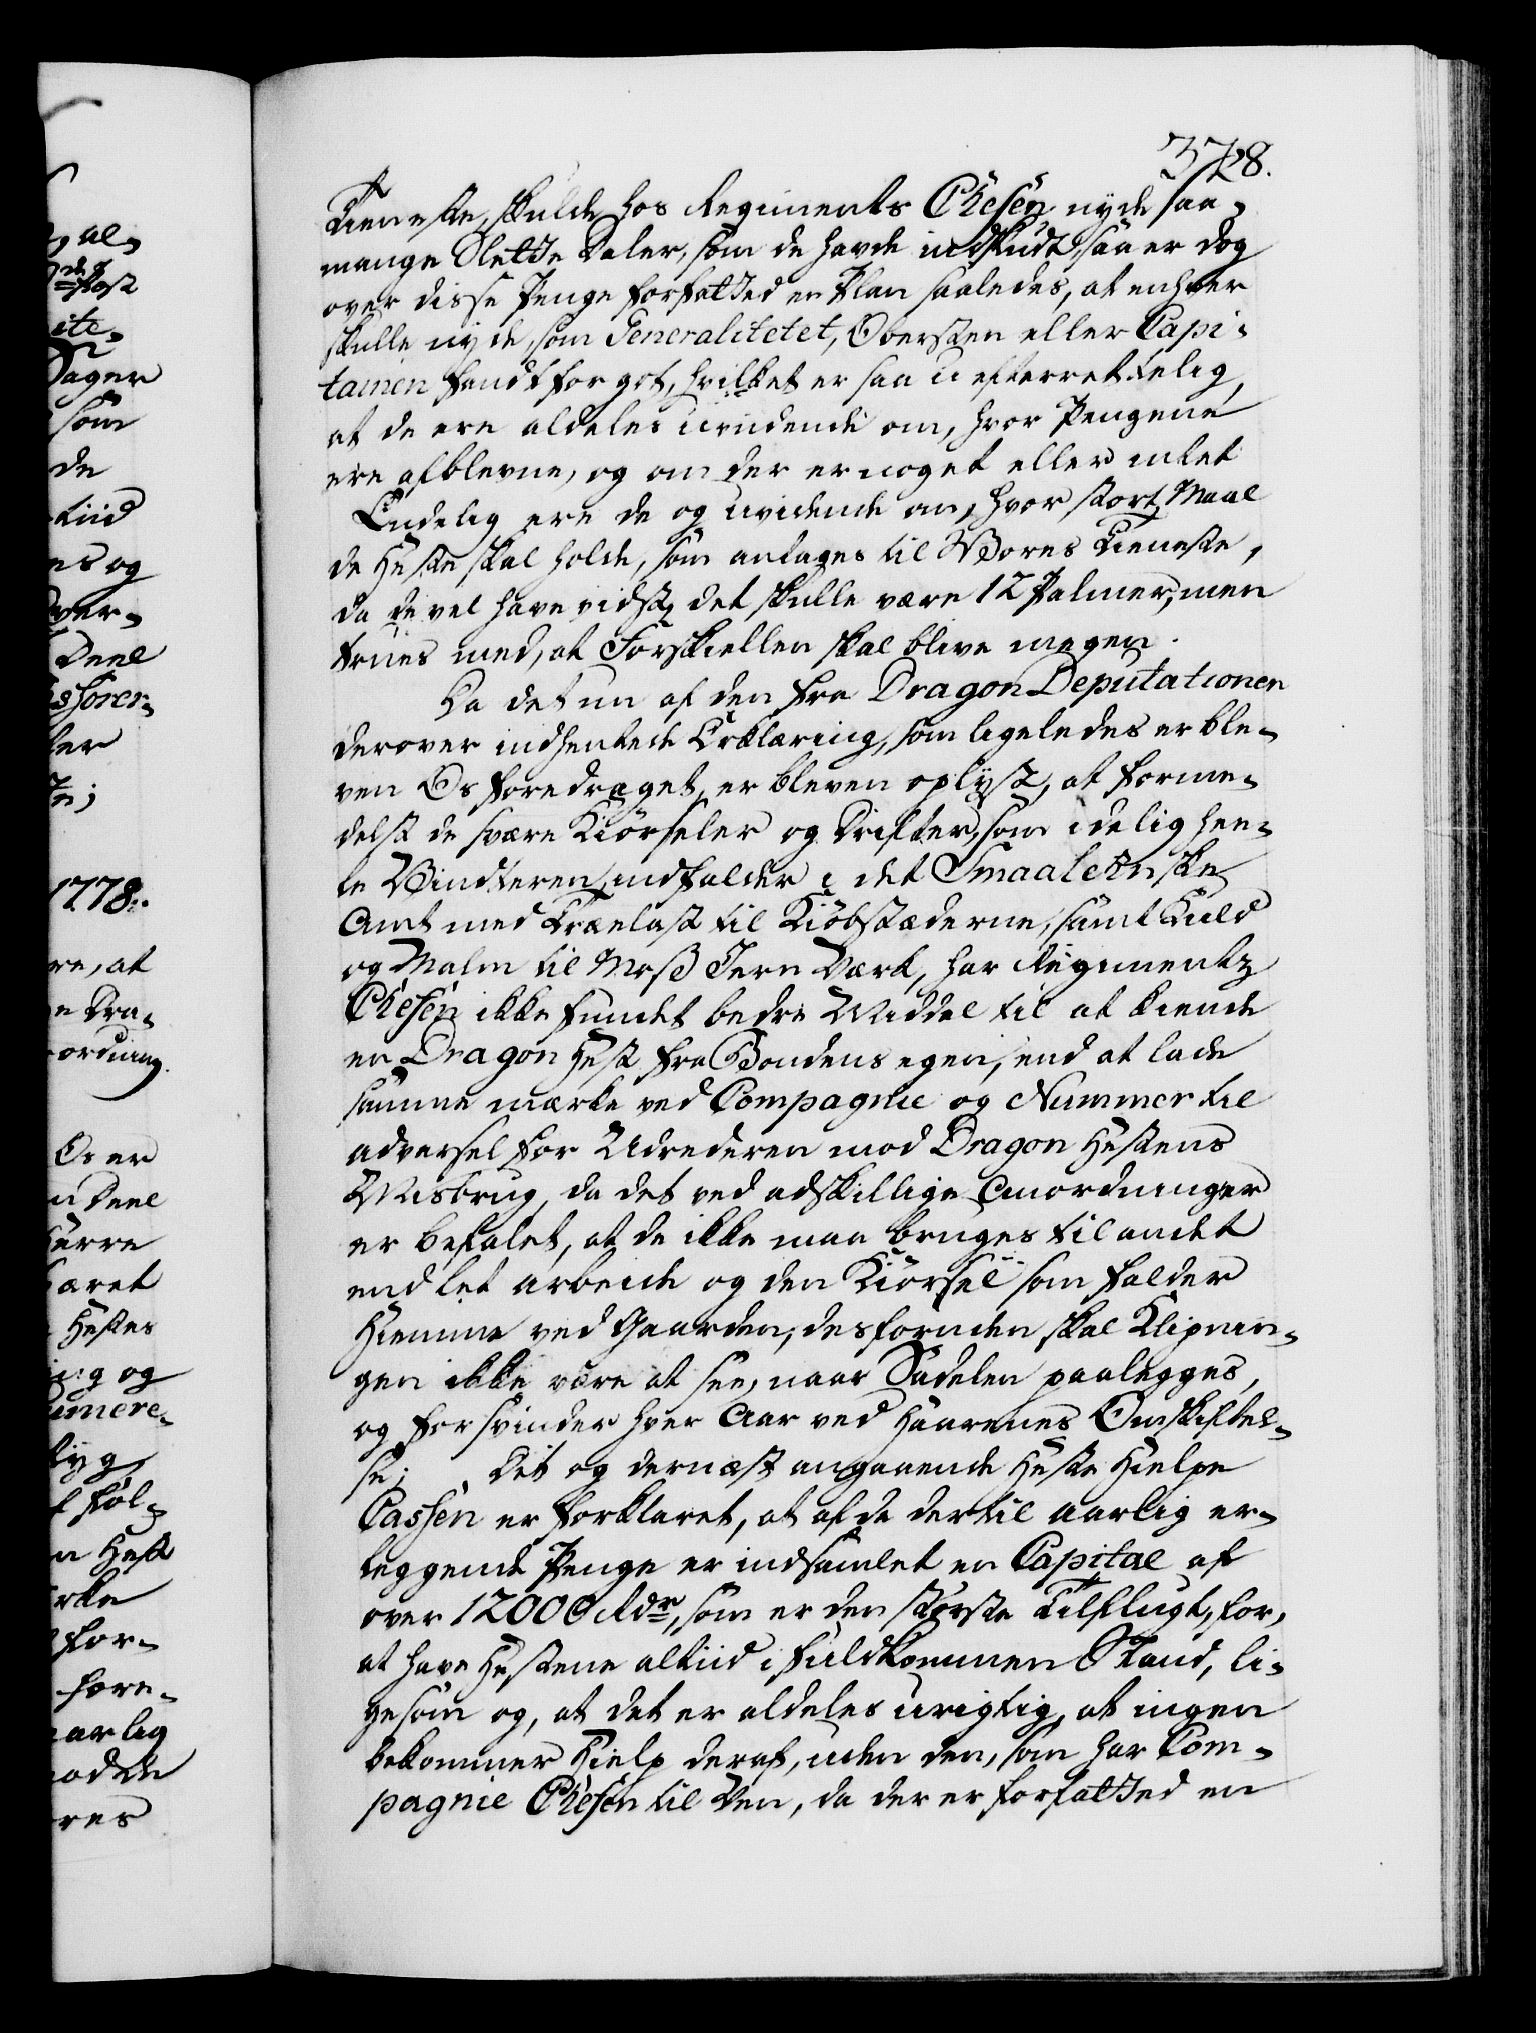 378.
Tieneste, skulde hos Regiments Chefen nyde saa-
mange Slette Daler, som de havde indskudt, saa er dog
over disse Penge forfatted en Plan saaledes, at enhver
skulle nyde, som Generalitetet, Obersten eller Capi-
tainen fandt for got, hvilket er saa uefterrettelig,
at de ere aldeles uvidende om, hvor Pengene
ere afblevne, og om der er noget eller intet
Endelig ere de og uvidende om, hvor stort Maal
de Heste skal holde, som antages til Vores Tieneste,
da de vel have vidst, det skulle være 12 Palmer, men
trues med, at Forskiellen skal blive megen.
Da det nu af den fra Dragon Deputationen
derover indhentede Erklæring, som ligeledes er ble-
ven Os foredraget, er bleven oplyst, at forme-
delst de svære Kiörseler og Drifter, som idelig hee-
le Vindteren indfalder i det Smaalehnske
Amt med Trælast til Kiöbstæderne, samt Kuld
og Malm til Moss Jern Værk, har Regiments
Chefen ikke fundet bedre Middel til at kiende
en Dragon Hest fra Bondens egen, end at lade
samme mærke ved Compagnie og Nummer til
advarsel for Udrederen mod Dragon Hestens
Misbrug, da det ved adskillige Anordninger
er befalet, at de ikke maa bruges til andet
end let arbeide og den Kiörsel som falder
Hiemme ved Gaarden, desforuden skal Klipnin-
gen ikke være at see, naar Sadelen paalegges,
og forsvinder hver Aar ved Haarenes Omskiftel-
se; Dit og dernæst angaaende Heste Hielpe
Cassen er forklaret, at af de dertil aarlig er-
leggende Penge er indsamlet en Capital af
over 12000 Rdr, som er den störste Tilflugt, for,
at have Hestene altiid i fuldkommen Stand, li-
gesom og, at det er aldeles urigtig, at ingen
bekommer Hielp deraf, uden den, som har Com-
pagnie Chefen til Ven, da der er forfatted en
1778.